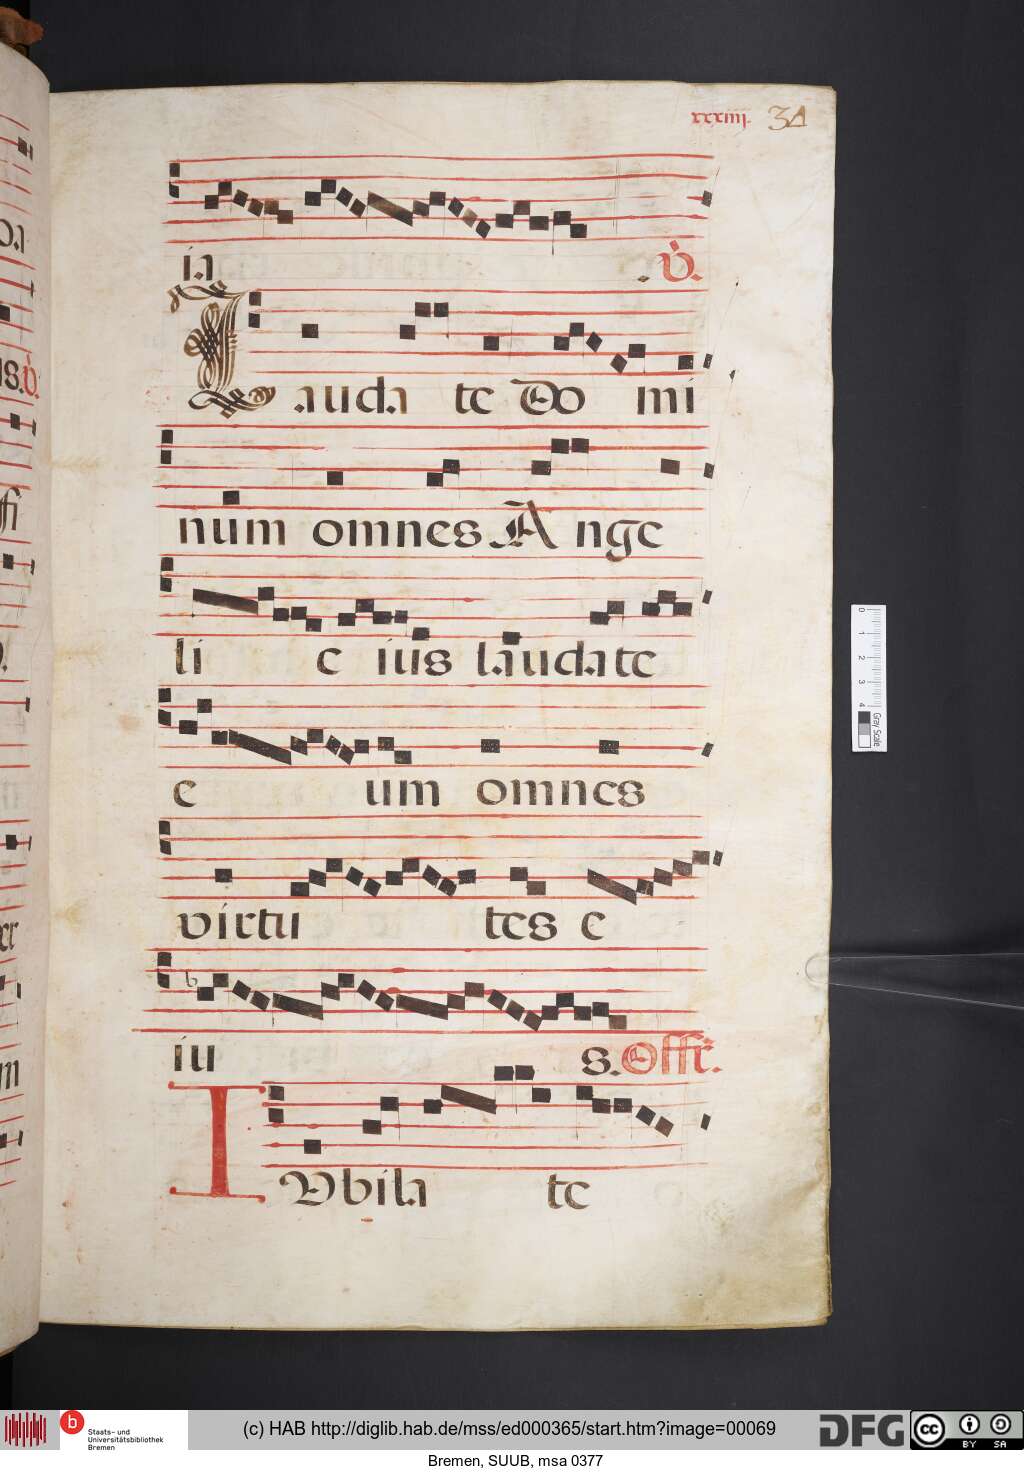 xxxiiij. 34
ia V.
Lauda te Do mi
num omnes A nge
li e ius laudate
e um omnes
virtu tes e
iu s. Offr.
I Vbila te
0 1 2 3 4 Gray Scale
b Staats- und Universitätsbibliothek Bremen
(c) HAB http://diglib.hab.de/mss/ed000365/start.htm?image=00069
DFG cc BY SA
Bremen, SUUB, msa 0377